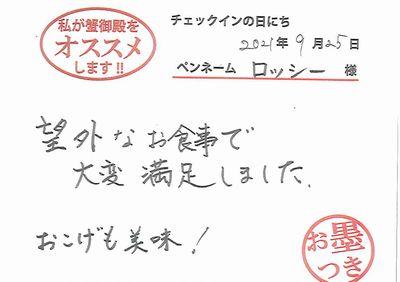 私が蟹御殿を
オススメ
します!!
チェックインの日にち
2021年9月25日
ペンネーム ロッシー 様
望外なお食事で
大変満足しました。
おこげも美味!
お墨
つき